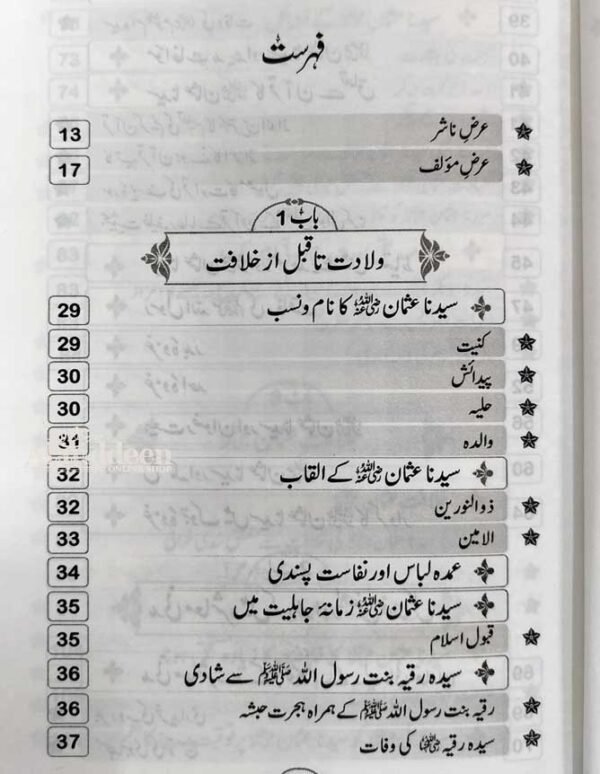 فہرست
عرضِ ناشر 13
عرضِ مؤلف 17
باب 1
ولادت تا قبل از خلافت
سیدنا عثمان رضی اللہ عنہ کا نام و نسب 29
کنیت 29
پیدائش 30
حلیہ 30
والدہ 31
سیدنا عثمان رضی اللہ عنہ کے القاب 32
ذوالنورین 32
الامین 33
عمدہ لباس اور نفاست پسندی 34
سیدنا عثمان رضی اللہ عنہ زمانۂ جاہلیت میں 35
قبول اسلام 35
سیدہ رقیہ بنت رسول اللہ ﷺ سے شادی 36
رقیہ بنت رسول اللہ ﷺ کے ہمراہ ہجرت حبشہ 36
سیدہ رقیہ رضی اللہ عنہا کی وفات 37